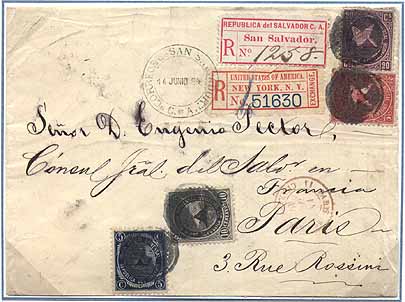 REPUBLICA del SALVADOR C. A.
San Salvador.
R No 1258.
UNITED STATES OF AMERICA.
NEW YORK, N. Y.
R No. 51630
EXCHANGE.
SAN
14 JUNIO
20
10
5
Señor D. Eugenio Pector,
Cónsul Jral. del Salvor en
Francia
Paris
3, Rue Rossini